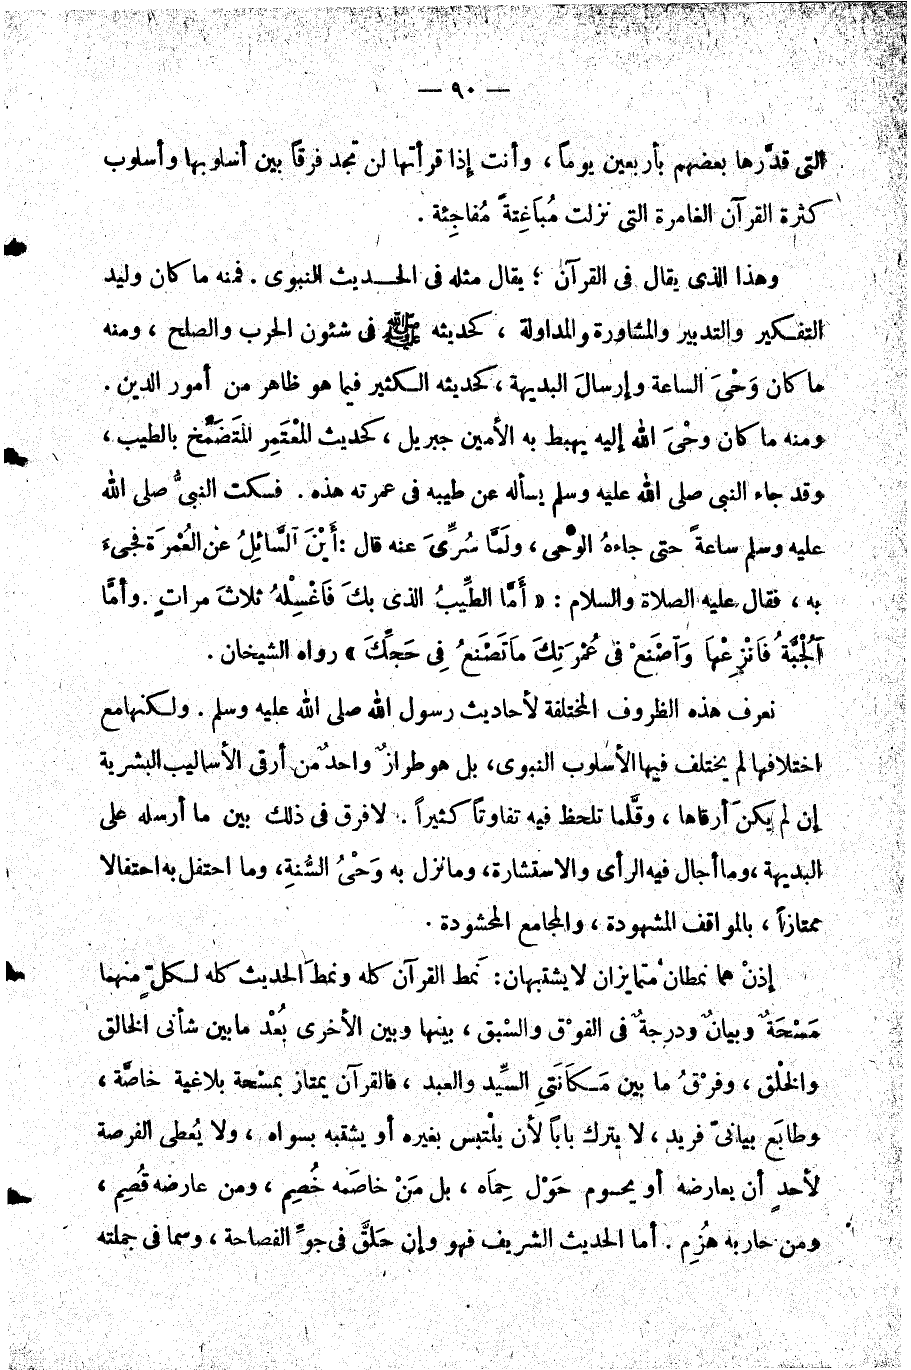 — ٩٠ —
التى قدَّرها بعضهم بأربعين يوماً ، وأنت إذا قرأتها لن تجد فرقاً بين أسلوبها وأسلوب
كثرة القرآن الغامرة التى نزلت مُبَاغِتةً مُفاجِئة .
وهذا الذى يقال فى القرآن ؛ يقال مثله فى الحـديث النبوى . فمنه ما كان وليد
التفكير والتدبير والمشاورة والمداولة ، كحديثه ﷺ فى شئون الحرب والصلح ، ومنه
ما كان وَحْىَ الساعة وإرسالَ البديهة ، كحديثه الكثير فيما هو ظاهر من أمور الدين .
ومنه ما كان وحْىَ الله إليه يهبط به الأمين جبريل ، كحديث المعْتَمِر المتَضَمِّخ بالطيب ،
وقد جاء النبى صلى الله عليه وسلم يسأله عن طيبه فى عمرته هذه . فسكت النبىُّ صلى الله
عليه وسلم ساعةً حتى جاءهُ الوحْى ، ولَمَّا سُرِّىَ عنه قال : أَيْنَ ٱلسَّائِلُ عن العُمْرَة فجىء
به ، فقال عليه الصلاة والسلام : « أَمَّا الطِّيبُ الذى بكَ فَاغْسِلْهُ ثلاثَ مراتٍ . وأمَّا
ٱلْجُبَّةُ فَانْزِعْهَا وَٱصْنَعْ فى عُمْرَتِكَ مَا تَصْنَعُ فِى حَجِّكَ » رواه الشيخان .
نعرف هذه الظروف المختلفة لأحاديث رسول الله صلى الله عليه وسلم . ولكنها مع
اختلافها لم يختلف فيها الأسلوب النبوى، بل هو طرازٌ واحدٌ من أرقى الأساليب البشرية
إن لم يكن أرقاها ، وقَّلما تلحظ فيه تفاوتاً كثيراً . لا فرق فى ذلك بين ما أرسله على
البديهة ، وما أجال فيه الرأى والاستشارة، وما نزل به وَحْىُ السُّنةِ، وما احتفل به احتفالا
ممتازاً ، بالمواقف المشهودة ، والمجامع المحشودة .
إذنْ هما نمطان متمايزان لا يشتبهان: نمط القرآن كله ونمط الحديث كله لكلّ ٍ منهما
مَسْحَةٌ وبيانٌ ودرجةٌ فى الفوْق والسْبق ، بينها وبين الأخرى بُعْد ما بين شأنى الخالق
والخلْق ، وفرْقُ ما بين مَكَانَتَىِ السيِّد والعبد ، فالقرآن يمتاز بمسْحة بلاغية خاصَّة ،
وطابَع بيانىّ فريد ، لا يترك باباً لأن يلْتبس بغيره أو يشتبه بسواه ، ولا يُعطى الفرصة
لأحدٍ أن يعارضه أو يحـوم حَوْل حِمَاه ، بل مَنْ خاصَمه خُصِم ، ومن عارضه قُصِم ،
ومن حاربه هُزِم . أما الحديث الشريف فهو وإن حَلَّق فى جوِّ الفصاحة ، وسما فى جملته